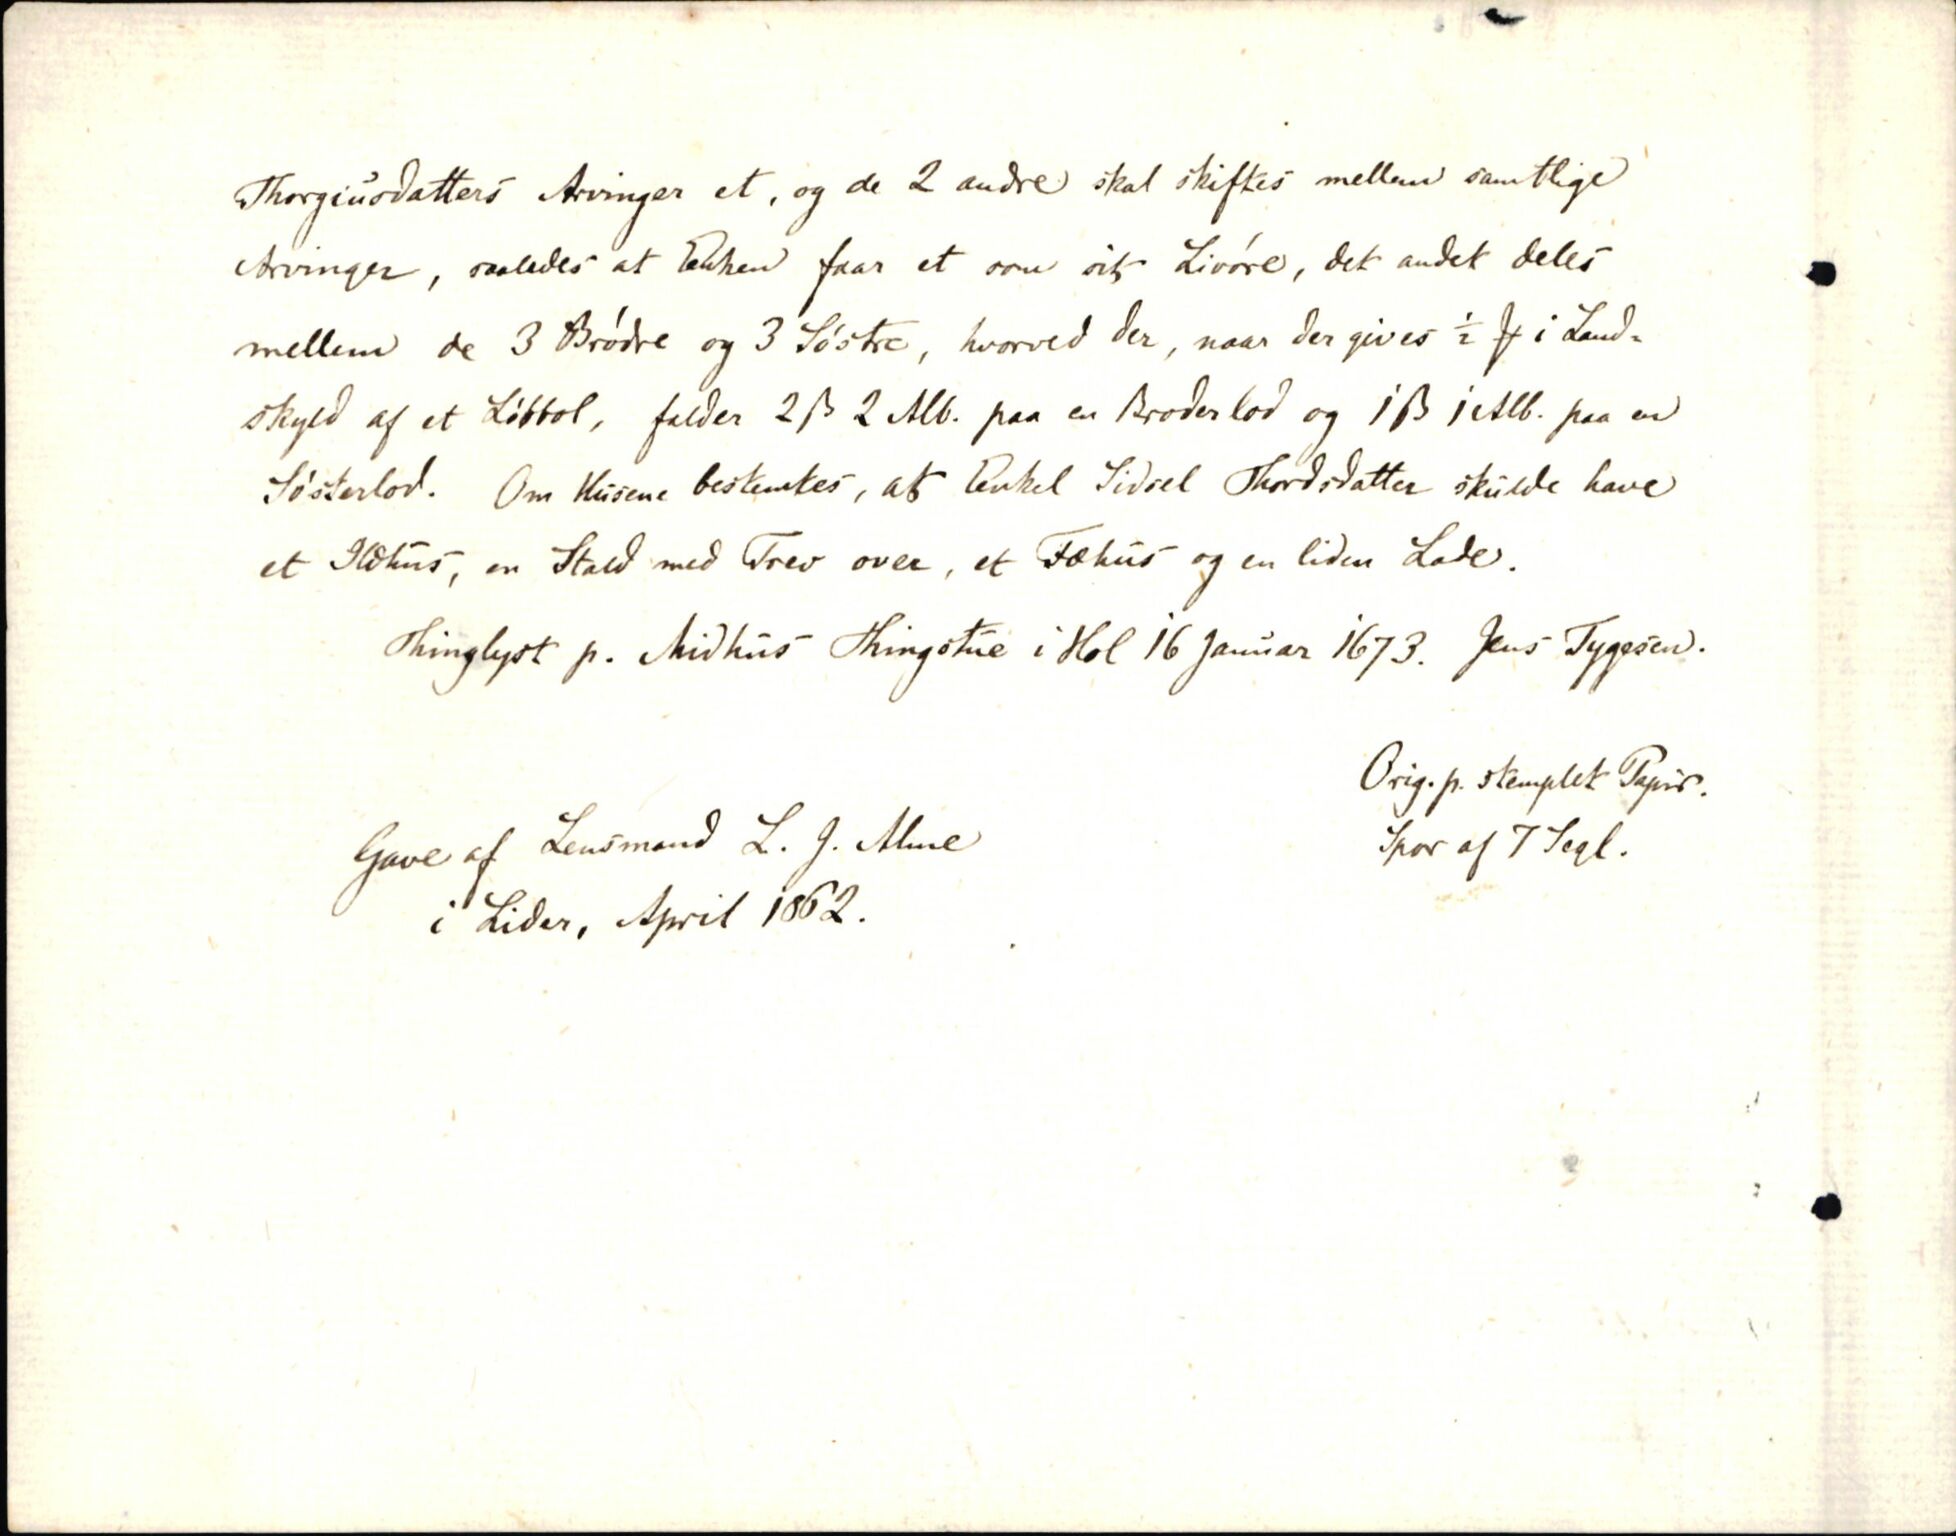 Thorgiusdatters Arvinger et, og de 2 andre skal skiftes mellem samtlige
Arvinger, saaledes at Enken faar et som sit Livøre, det andet deles
mellem de 3 Brødre og 3 Søstre, hvorved der, naar der gives ½ # i Land-
skyld af et Løbbol, falder 2 ß 2 Alb. paa en Broderlod og 1 ß 1 Alb. paa en
Søsterlod. Om Husene bestemtes, at Enken Sidsel Thordsdatter skulde have
et Ildhus, en Stald med Trev over, et Fæhus og en liden Lade.
Thinglyst p. Midhus Thingstue i Hol 16 Januar 1673. Jens Tygesen.
Orig. p. stemplet Papir.
Spor af 7 Segl.
Gave af Lensmand L. J. Alme
i Lider, April 1862.